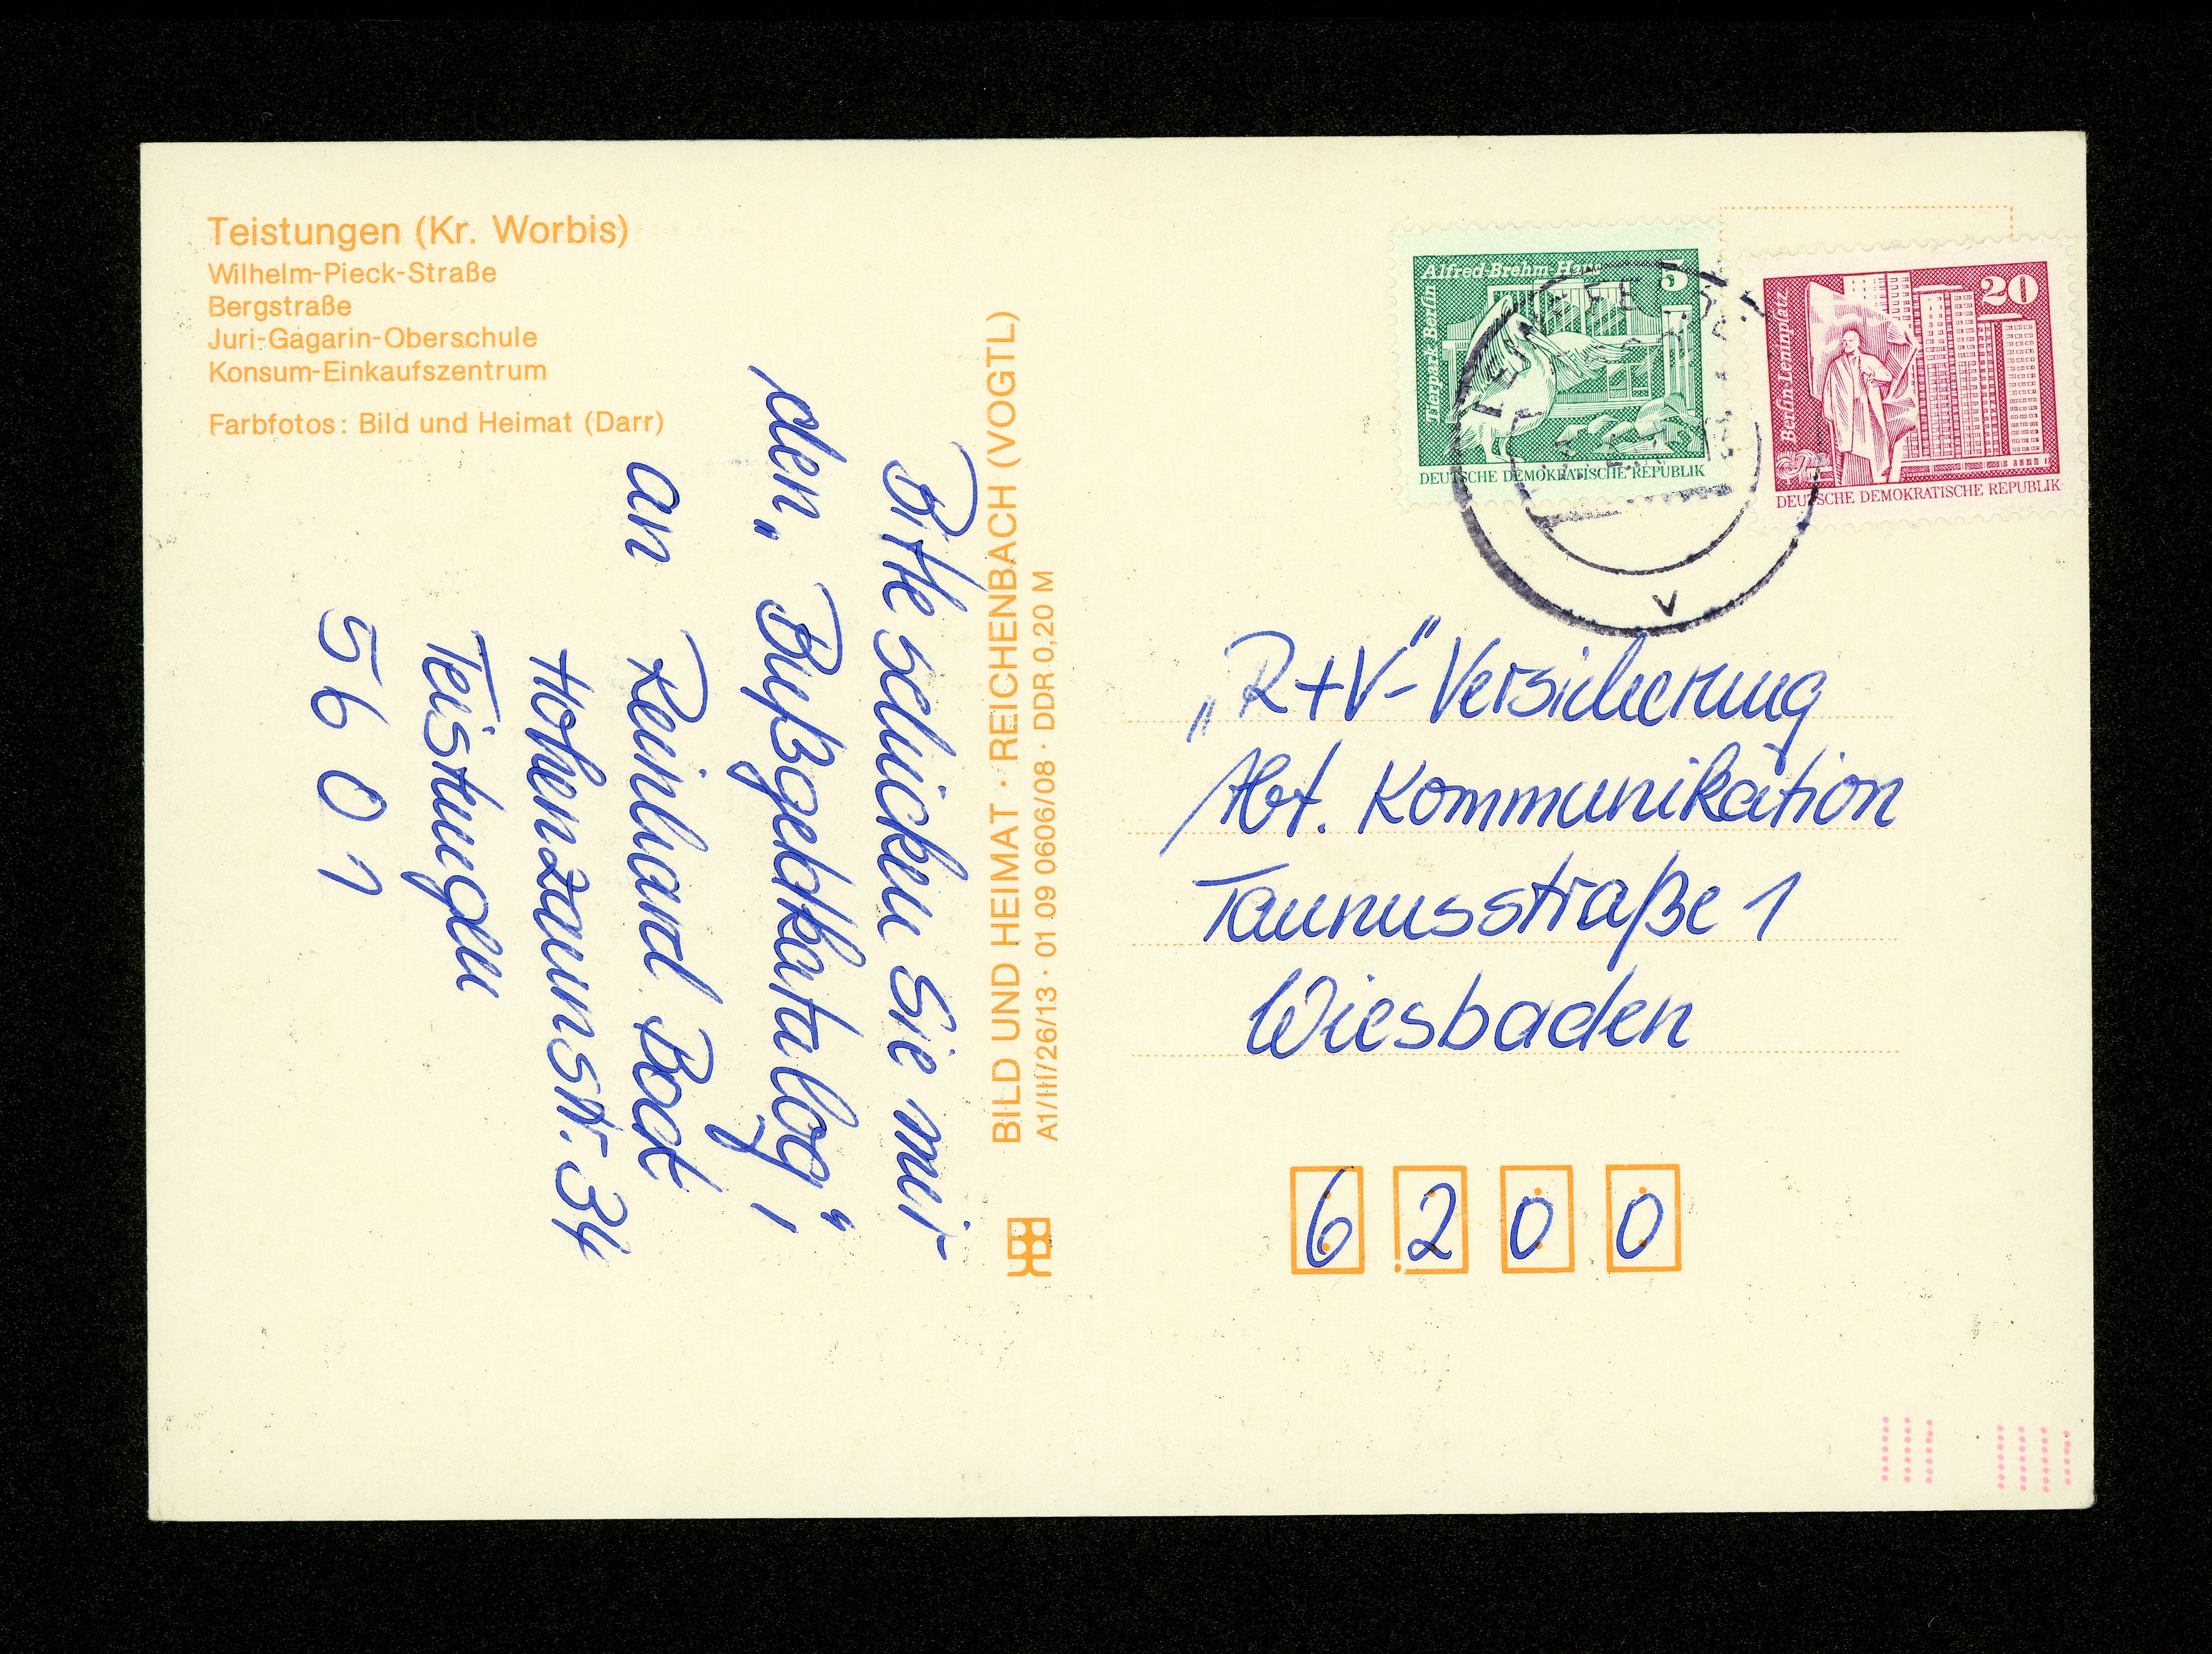 Teistungen (Kr. Worbis)
Wilhelm-Pieck-Straße
Bergstraße
Juri-Gagarin-Oberschule
Konsum-Einkaufszentrum
Farbfotos: Bild und Heimat (Darr)
Bitte schicken Sie mir
den „Bußgeldkatalog"
an Reinhard Bock,
Hohenzaunstr. 34
Teistungen
5601
BILD UND HEIMAT · REICHENBACH (VOGTL)
A1/III/26/13 · 01 09 0606/08 · DDR 0,20 M
Alfred-Brehm-Haus 5
Tierpark Berlin
DEUTSCHE DEMOKRATISCHE REPUBLIK
20
Berlin-Leninplatz
DEUTSCHE DEMOKRATISCHE REPUBLIK
v
„R+V"-Versicherung
Abt. Kommunikation
Taunusstraße 1
Wiesbaden
6200